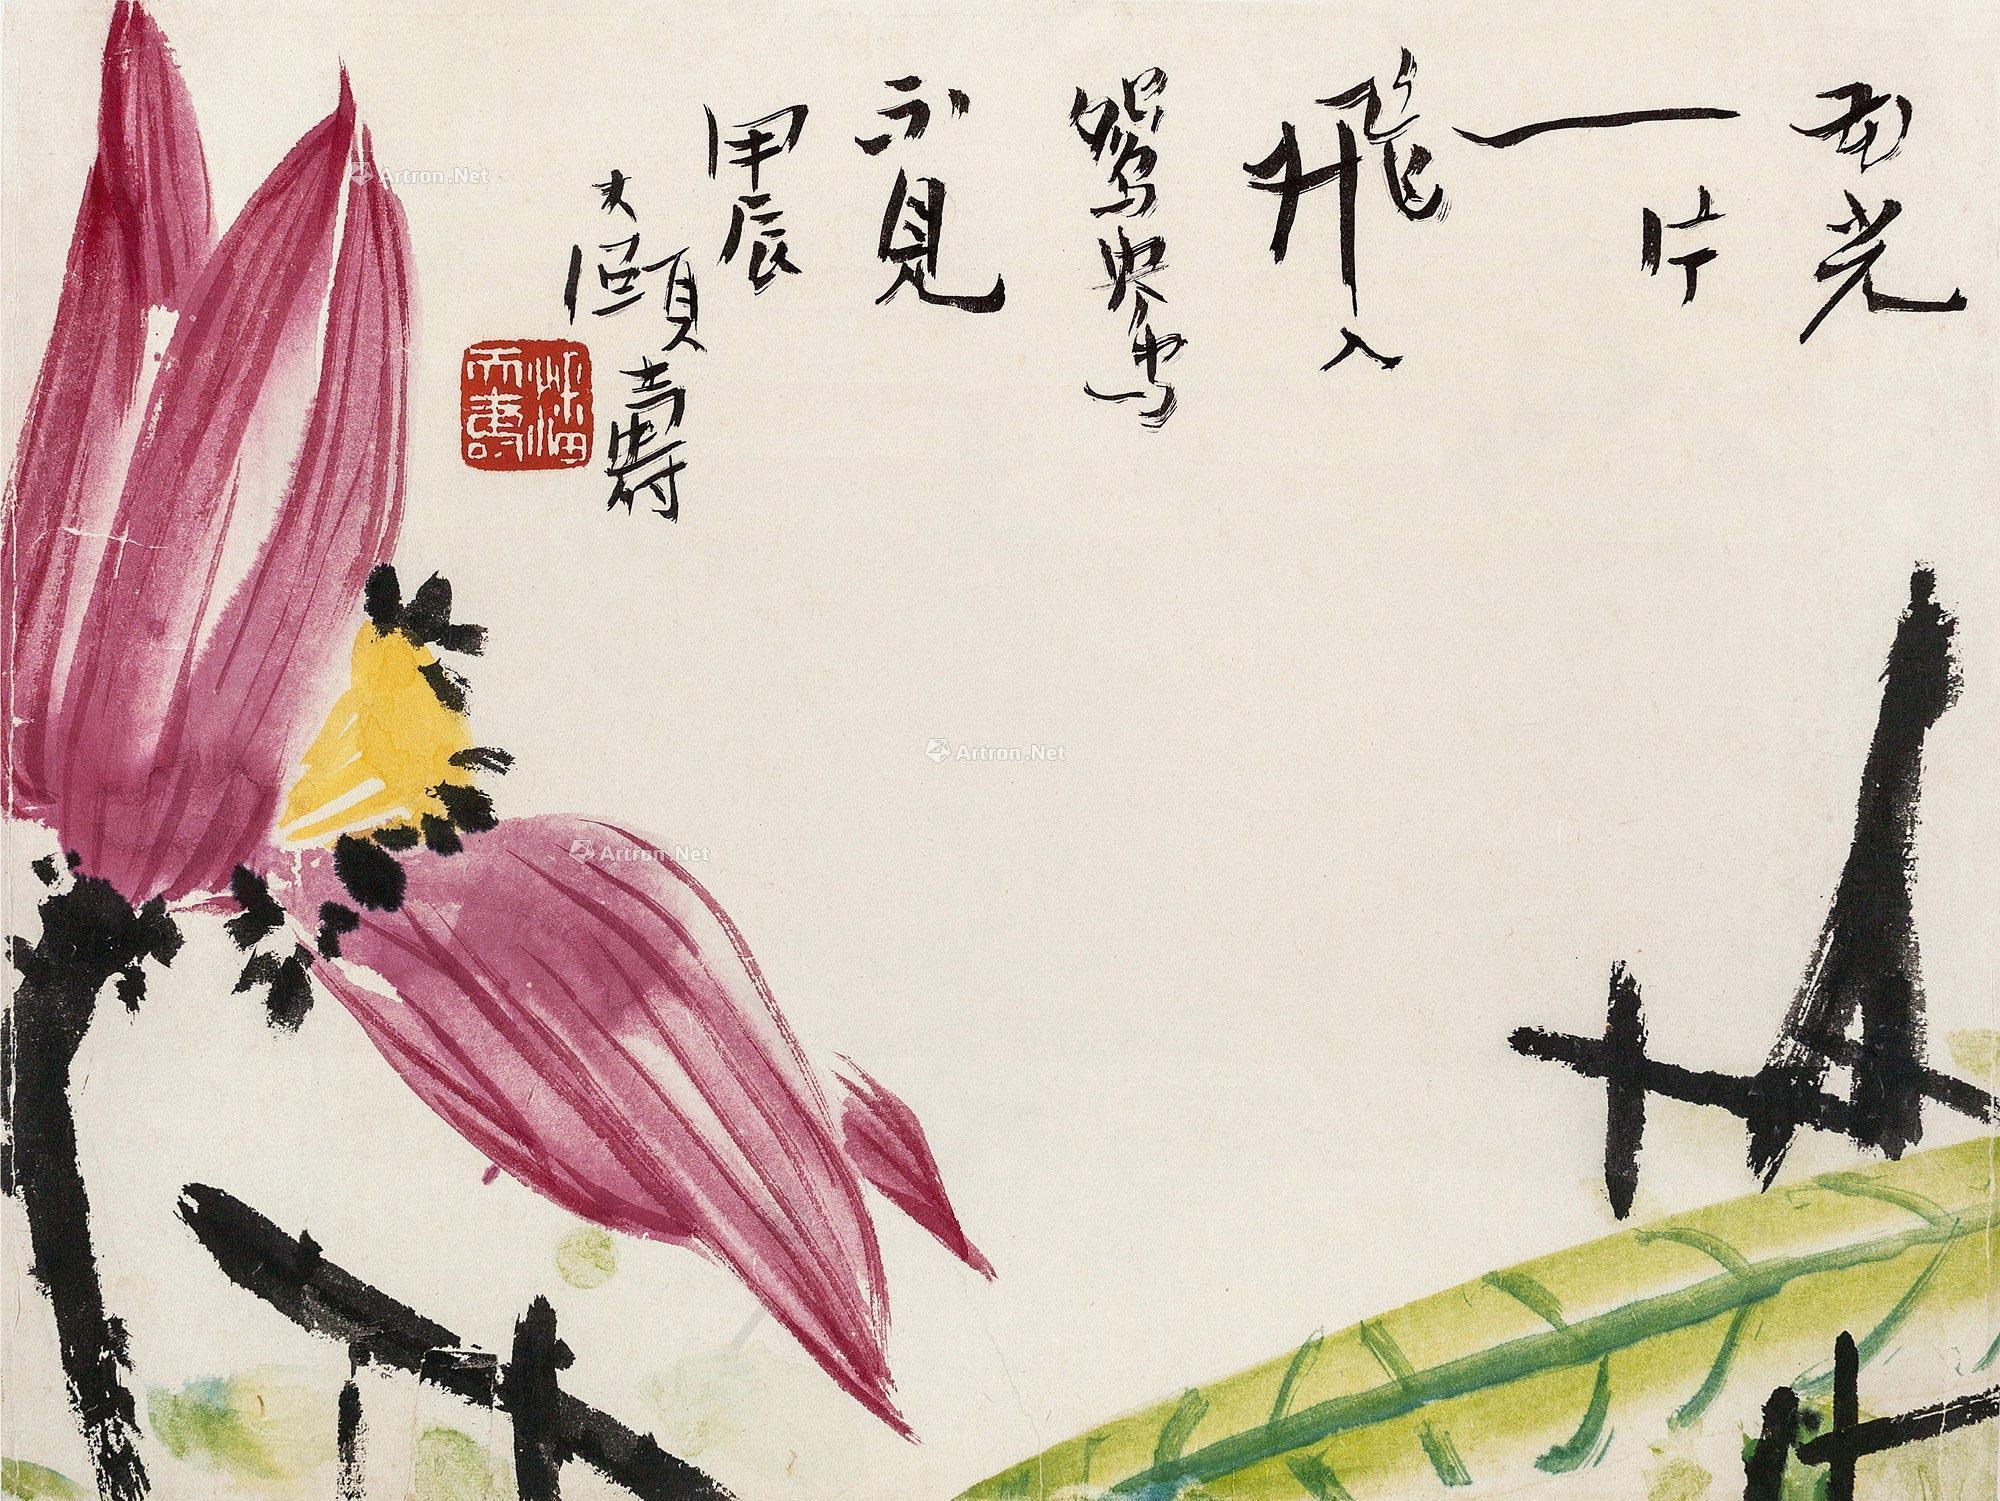 光
一片
飛入
鴛鴦
不見
甲辰
大頤壽
潘天壽
Artron.Net
Artron.Net
Artron.Net